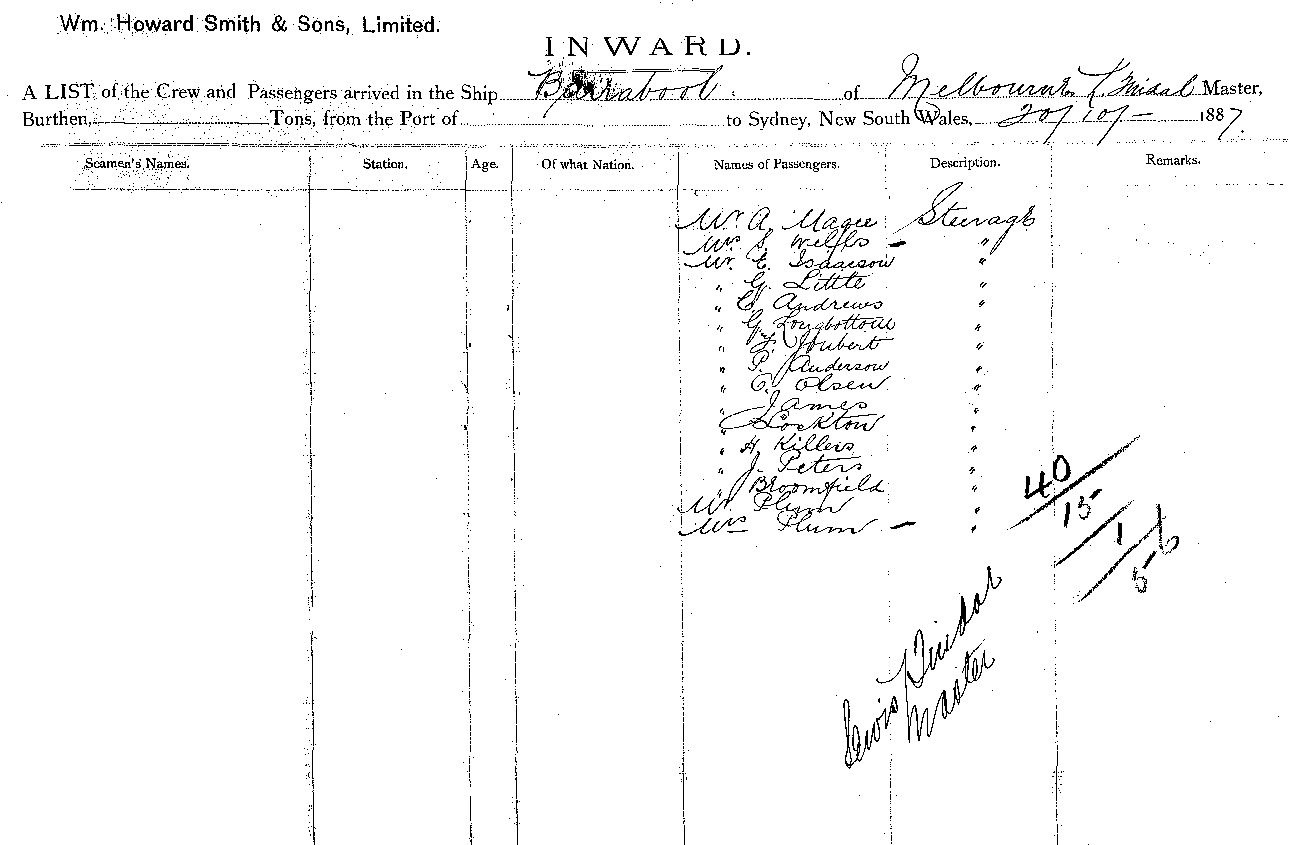 Wm. Howard Smith & Sons, Limited.
INWARD.
A LIST of the Crew and Passengers arrived in the Ship Barrabool of Melbourne L Master,
Burthen, Tons, from the Port of to Sydney, New South Wales, 20/10/- 1887.
Seamen's Names. Station. Age. Of what Nation. Names of Passengers. Description. Remarks.
Mr A. Magee Steerage
Mrs S. — "
Mr. E. Isaacson "
" G. Little "
" C. Andrews "
" G. Longbottom "
" F. Joubert "
" P. Anderson "
" C. Olsen "
" James "
" Lockton "
" H. Killers "
" J. Peters "
" Broomfield "
Mr. Plum "
Mrs Plum — "
40
15
1
5 6
Lewis
Master